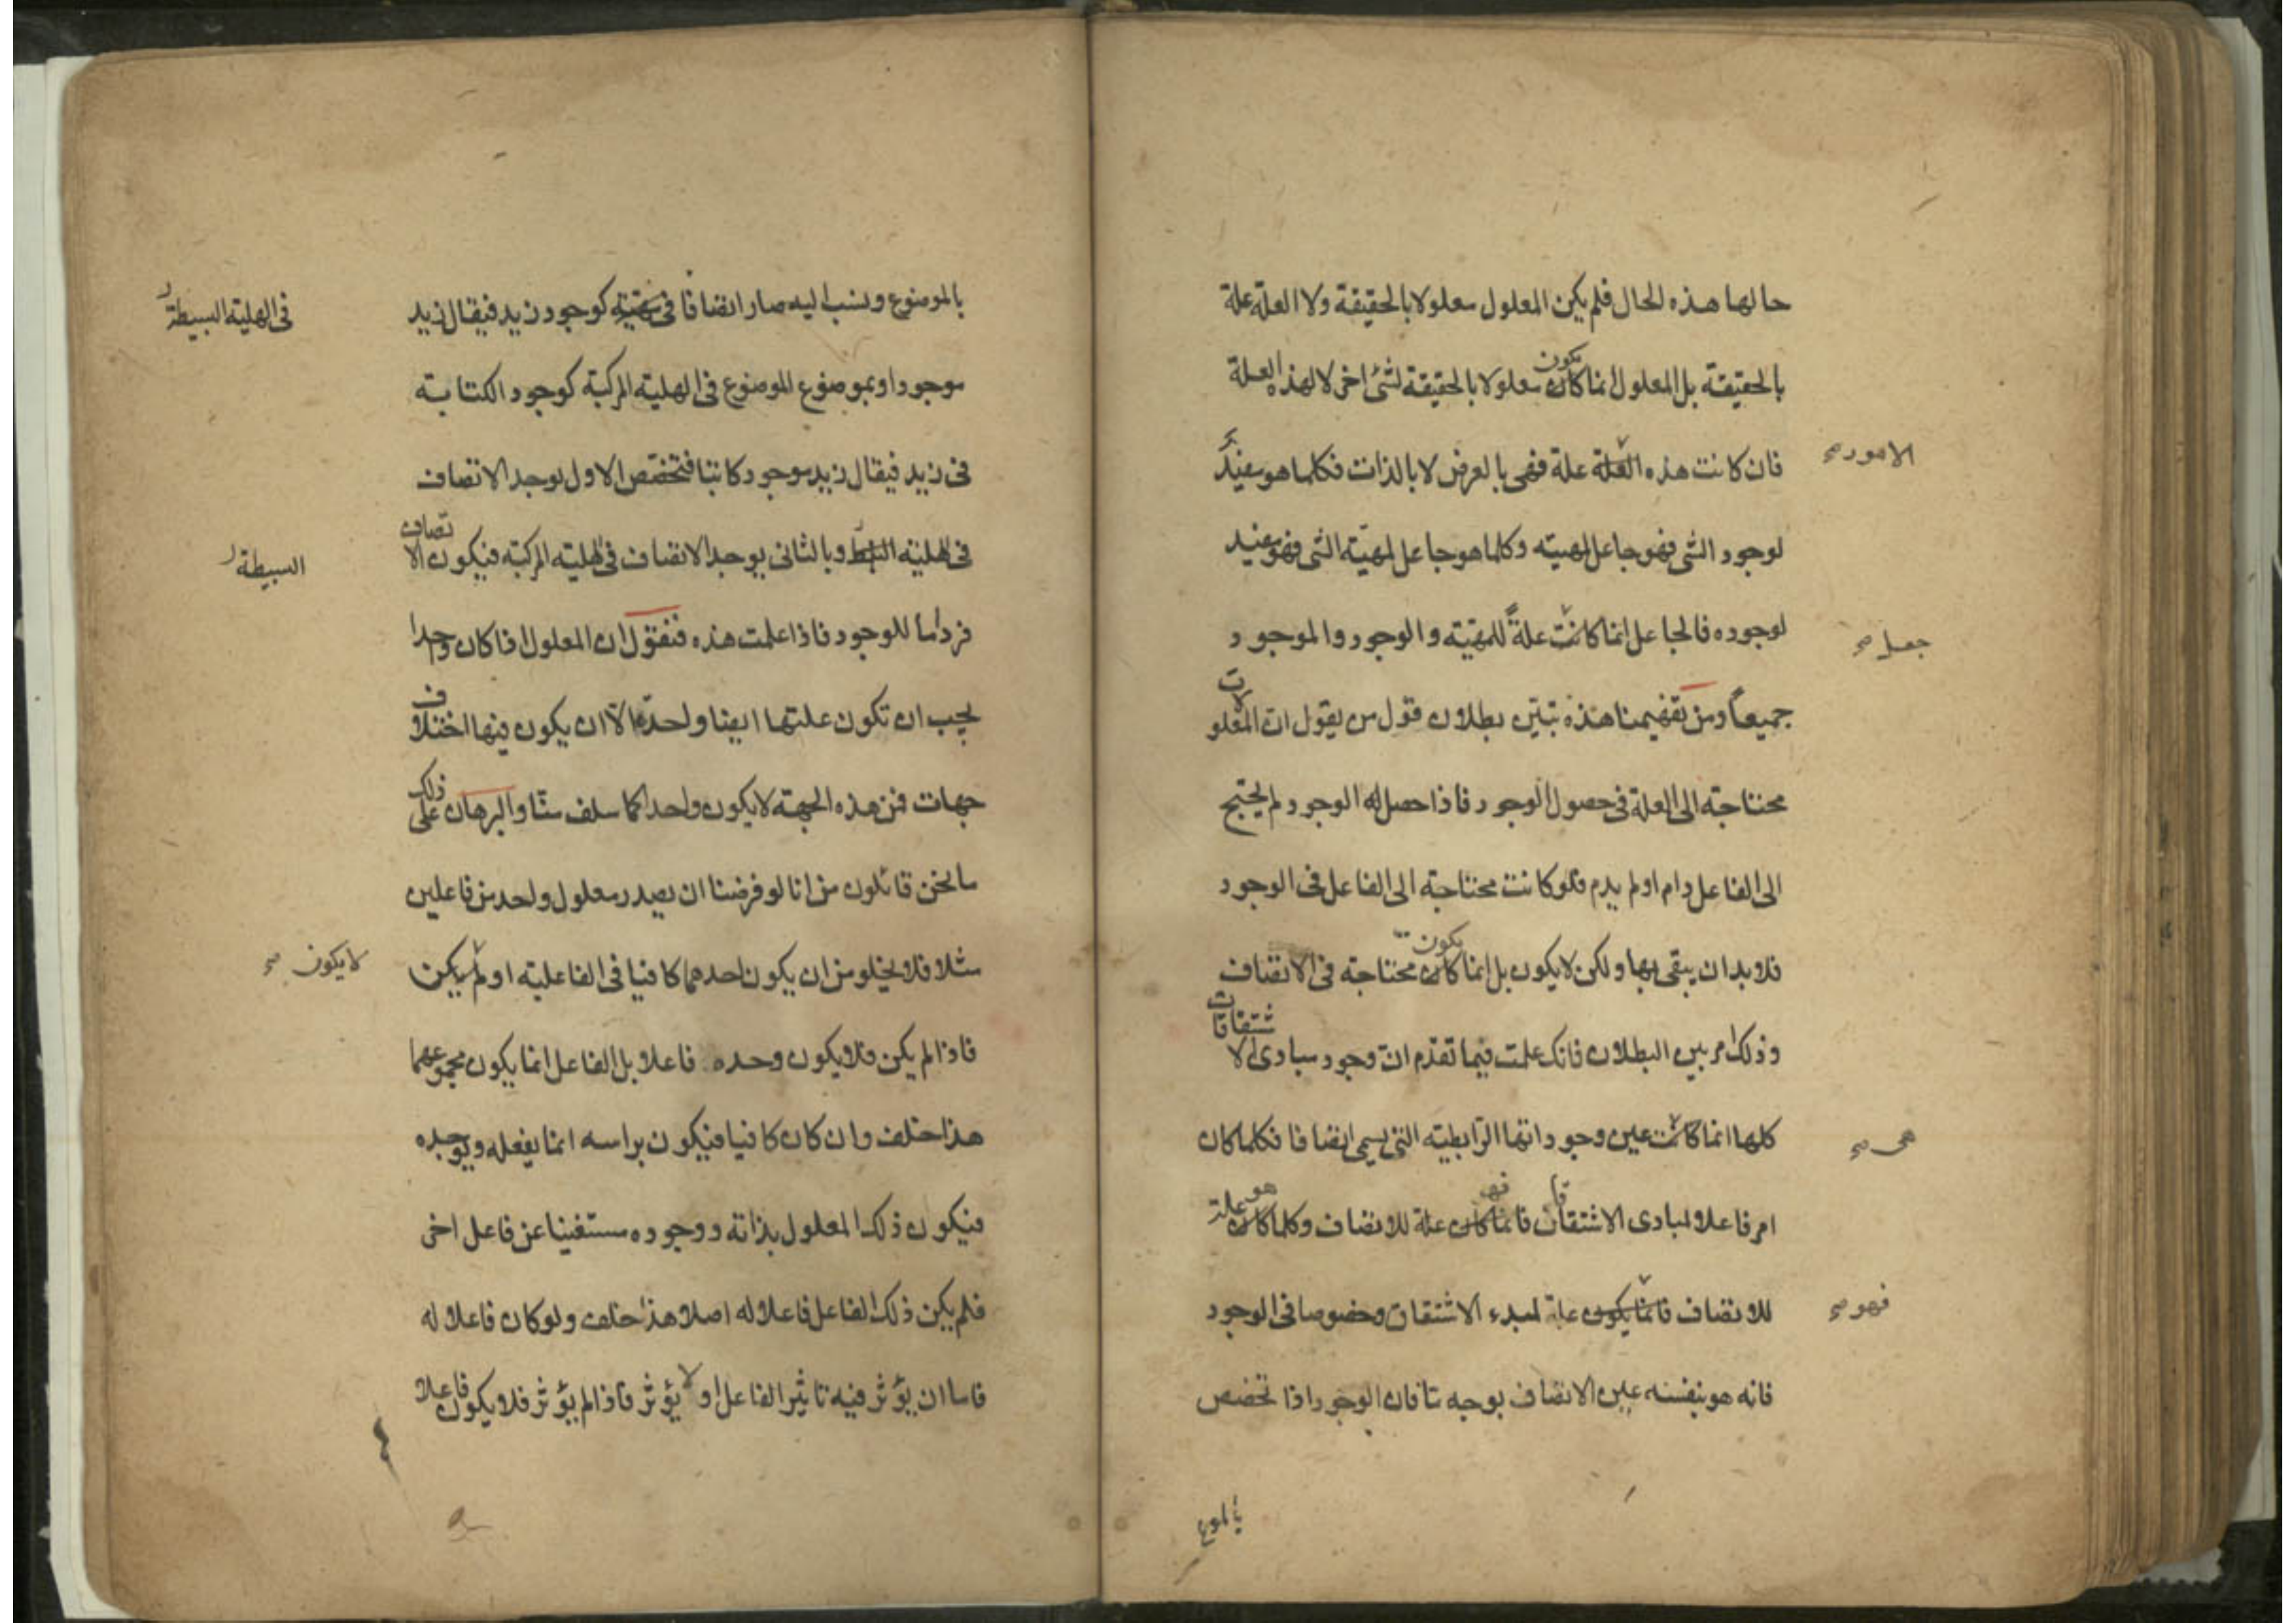 حالها هذه الحال فلم يكن المعلول معلولا بالحقيقة ولا العلة علة
بالحقيقة بل المعلول انما كان يكون معلولا بالحقيقة لشئ اخر لا لهذه العلة
فان كانت هذه العلة علة فهى بالعرض لا بالذات فكلما هو مفيد
الامور صح
لوجود الشى فهو جاعل لمهيته وكلما هو جاعل لمهية الشى فهو مفيد
لوجوده فالجاعل انما كانت علةً للمهيّة والوجود والموجود
جعل صح
جميعاً ومن تفهيمنا هذه تبيّن بطلان قول من يقول انّ المعلولات
محتاجة الى العلة فى حصول الوجود فاذا حصل له الوجود لم يحتج
الى الفاعل دام او لم يدم فلو كانت محتاجة الى الفاعل فى الوجود
فلا بد ان يبقى بها ولكن لا يكون بل انما كان يكون محتاجة فى الاتصاف
وذلك امر بين البطلان فانك علمت فيما تقدم انّ وجود مبادى الاشتقاقات
كلها انما كانت عين وجوداتها الرابطية التى يسمى اتصافا فكلما كان
هى صح
امر فاعلا لمبادى الاشتقاق فانما كان فهو علة للاتصاف وكلما كان هو علة
للاتصاف فانما يكون علة لمبدء الاشتقاق وخصوصا فى الوجود
فهو صح
فانه هو بنفسه عين الاتصاف بوجه ما فان الوجود اذا تخصص
بالموضوع
بالموضوع ونسب اليه صار اتصافا فى مهيته كوجود زيد فيقال زيد
فى الهلية البسيطة
موجود او بموضوع الموضوع فى الهلية المركبة كوجود الكتابة
فى زيد فيقال زيد موجود كاتبا فتخصّص الاول يوجد الاتصاف
فى الهلية البسيط وبالثانى يوجد الاتصاف فى الهلية المركبة فيكون الاتصاف
البسيطة
فردا ما للوجود فاذا علمت هذه فنقول ان المعلول اذا كان واحدا
يجب ان تكون علتها ايضا واحدة الّا ان يكون فيها اختلاف
جهات فمن هذه الجهة لا يكون واحدا كما سلف منّا والبرهان على ذلك
ما نحن قائلون من انا لو فرضنا ان يصدر معلول واحد من فاعلين
مثلا فلا يخلو من ان يكون احدهما كافيا فى الفاعلية او لم يكن
لا يكون صح
فاذا لم يكن فلا يكون وحده فاعلا بل الفاعل انما يكون مجموعهما
هذا خلف وان كان كافيا فيكون براسه انما يفعله ويوجده
فيكون ذلك المعلول بذاته ووجوده مستغنيا عن فاعل اخر
فلم يكن ذلك الفاعل فاعلا له اصلا هذا خلف ولو كان فاعلا له
فاما ان يؤثر فيه تاثير الفاعل او لا يؤثر فاذا لم يؤثر فلا يكون فاعلا